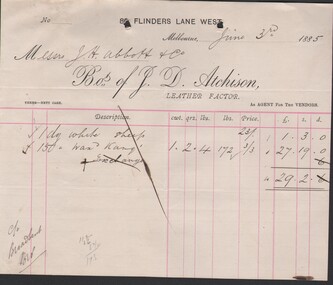 No
86 FLINDERS LANE WEST,
Melbourne, June 3rd 1885
Messrs J. H. Abbott & Co
Bot. of J. D. Atchison,
LEATHER FACTOR.
TERMS—NETT CASH.
As AGENT FOR THE VENDORS.
Description. cwt. qrs. lbs. lbs. Price. £ s. d.
1 dy white sheep 1 - 3 - 0
150 Kang 1 . 2 . 4 172 3/3 27 - 19 - 0
+ Exchange
29 2
c/o